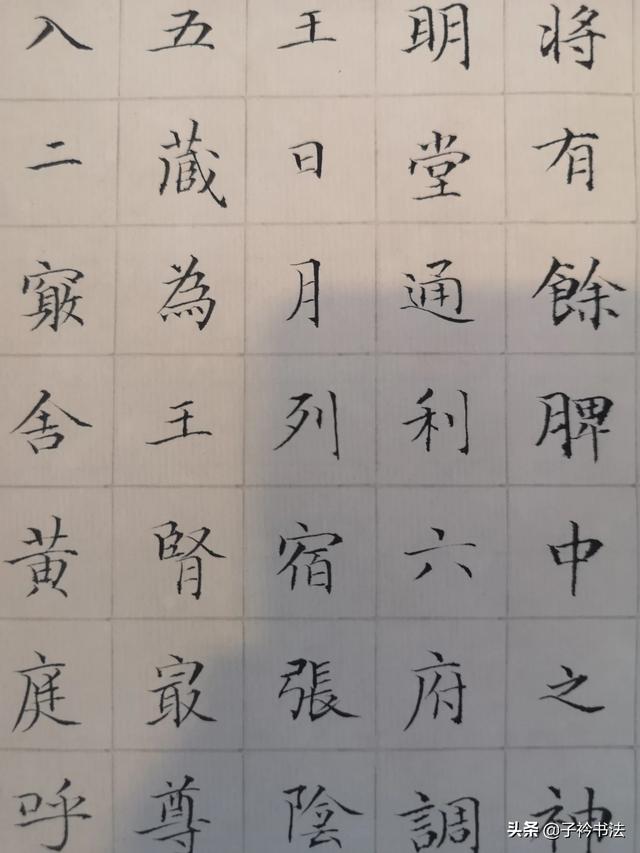 将有餘脾中之神
明堂通利六府調
王日月列宿張陰
五藏為王腎㝡尊
入二竅舍黃庭呼
头条 @子衿书法